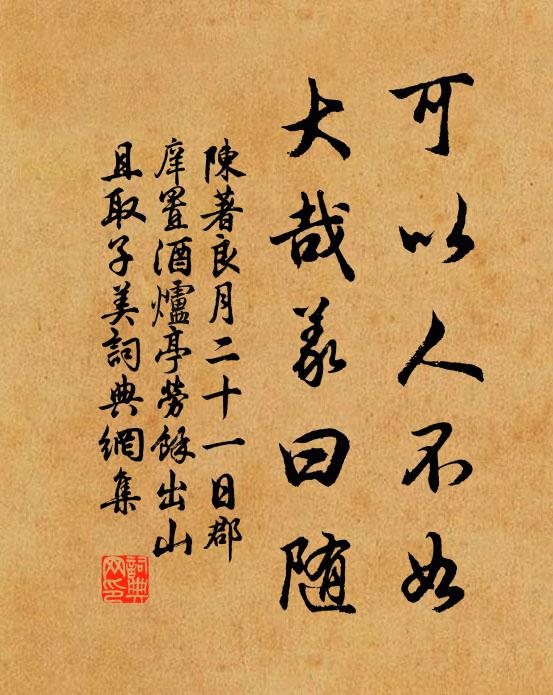 可以人不如
大哉羲曰随
陳著良月二十一日郡
庠置酒爐亭勞餘出山
且取子美詞典網集
詞典網印